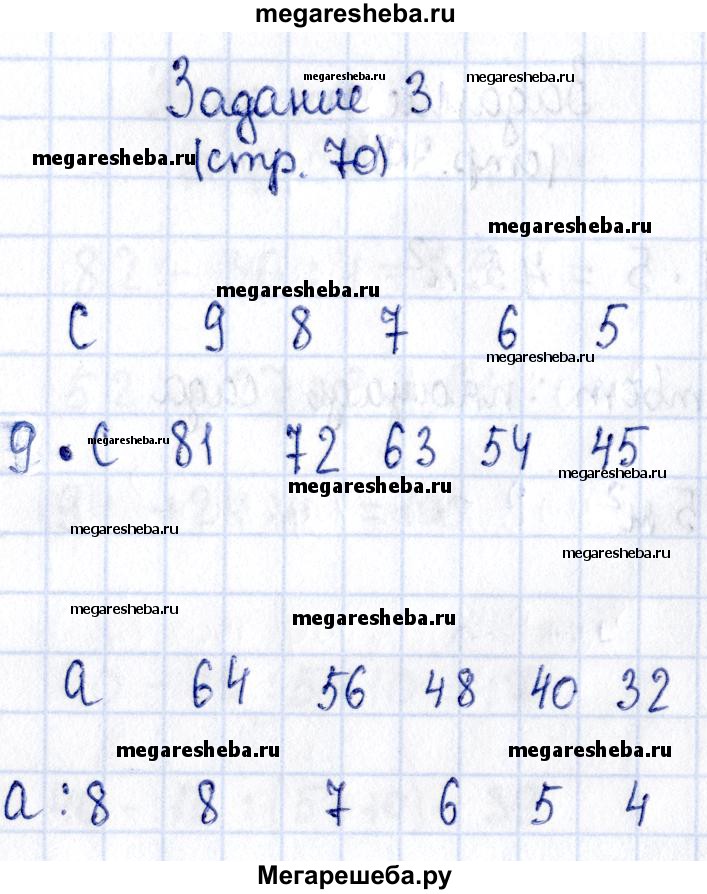 megaresheba.ru
Задание 3
megaresheba.ru
megaresheba.ru
megaresheba.ru
(стр. 70)
megaresheba.ru
megaresheba.ru
c 9 8 7 6 5
megaresheba.ru
9 · c 81 72 63 54 45
megaresheba.ru
megaresheba.ru
megaresheba.ru
megaresheba.ru
megaresheba.ru
megaresheba.ru
megaresheba.ru
a 64 56 48 40 32
megaresheba.ru
megaresheba.ru
a : 8 8 7 6 5 4
Мегарешеба.ру